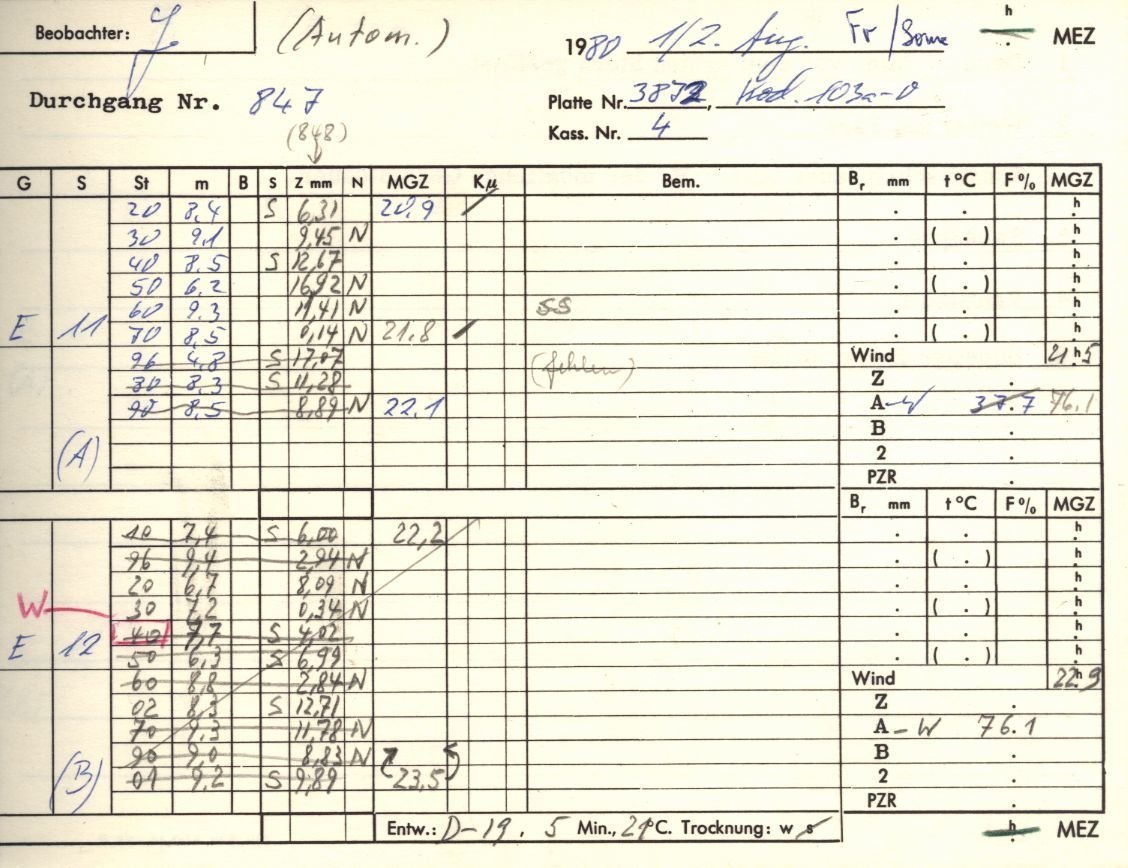 Beobachter: (Autom.) 1980 1/2. Aug. Fr/Sonne h MEZ
Durchgang Nr. 847 Platte Nr. 3872, Kod. 103a-O
(848) Kass. Nr. 4
G S St m B S Z mm N MGZ Kμ Bem. Br mm t°C F% MGZ
20 8.4 S 6,31 20.9 . . h
30 9.1 9,45 N . ( . ) h
40 8.5 S 12,67 . . h
50 6.2 16,92 N . ( . ) h
60 9.3 11,41 N SS . . h
E 11 70 8.5 0,14 N 21.8 . ( . ) h
96 4,8 S 17,07 (fehlen) Wind 21h5
80 8.3 S 11,28 Z .
90 8.5 8,89 N 22.1 A-W 37.7 76.1
B .
(A) 2 .
PZR .
Br mm t°C F% MGZ
10 7,4 S 6,00 22,2 . . h
96 9,4 2,94 N . ( . ) h
20 6,7 8,09 N . . h
W 30 7,2 0,34 N . ( . ) h
E 12 40 7,7 S 4,02 . . h
50 6,3 S 6,99 . ( . ) h
60 8,8 2,84 N Wind 22h9
02 8,3 S 12,71 Z .
70 9,3 11,78 N A-W 76.1
90 9,0 8,83 N B .
(B) 01 9,2 S 9,89 23,5 2 .
PZR .
Entw.: D-19. 5 Min., 21°C. Trocknung: w s h MEZ